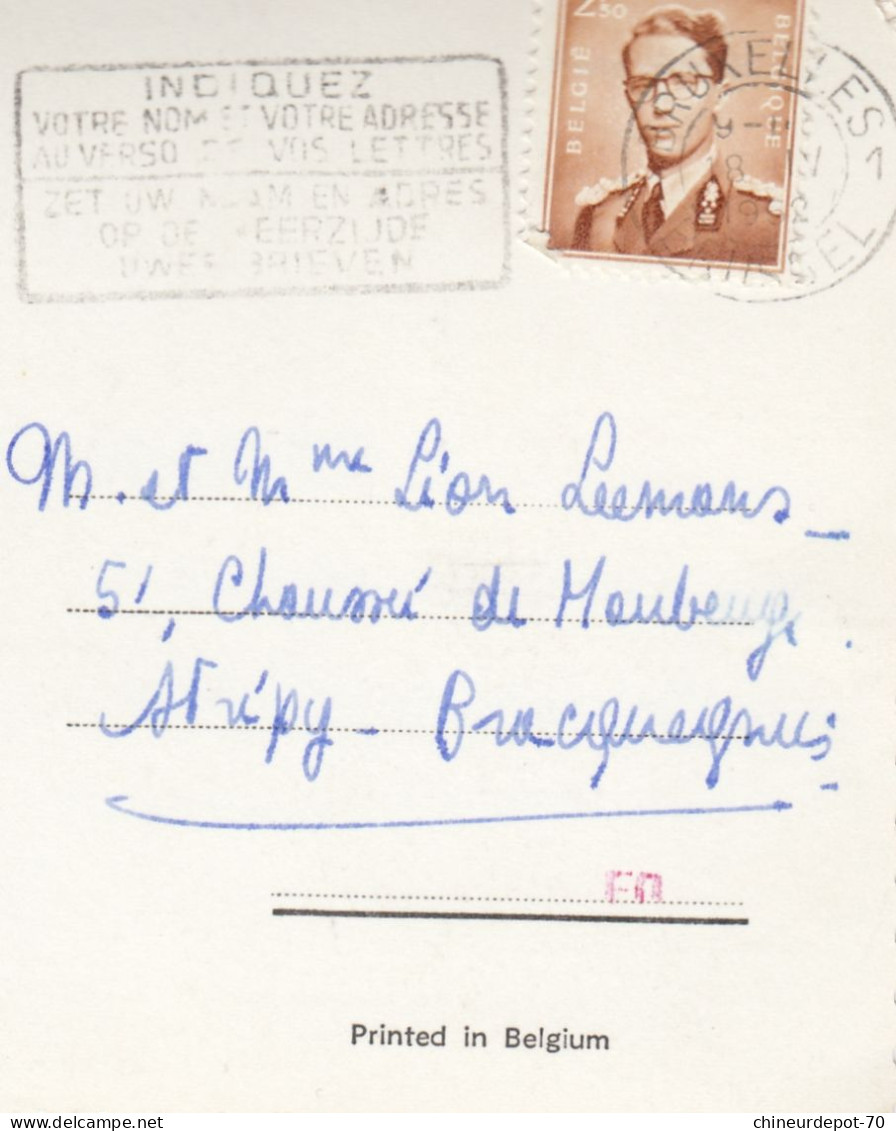 INDIQUEZ
VOTRE NOM ET VOTRE ADRESSE
AU VERSO DE VOS LETTRES
ZET UW NAAM EN ADRES
OP DE KEERZIJDE
UWER BRIEVEN
2,50
BELGIË
BELGIQUE
BRUXELLES 1
BRUSSEL
M. et Mme Léon Leemans
5, Chaussée de Maubeuge
Strépy - Bracquegnies
Printed in Belgium
chineurdepot-70